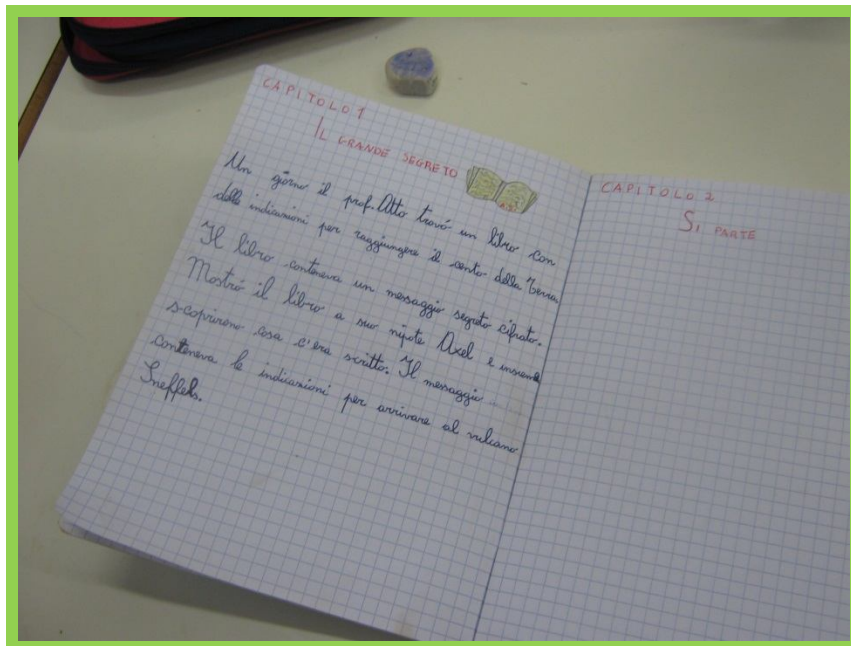 CAPITOLO 1
IL GRANDE SEGRETO
Un giorno il prof. Otto trovò un libro con
delle indicazioni per raggiungere il cento della Terra.
Il libro conteneva un messaggio segreto cifrato.
Mostrò il libro a suo nipote Axel e insieme
scoprirono cosa c'era scritto. Il messaggio
conteneva le indicazioni per arrivare al vulcano
Sneffels.
CAPITOLO 2
SI PARTE